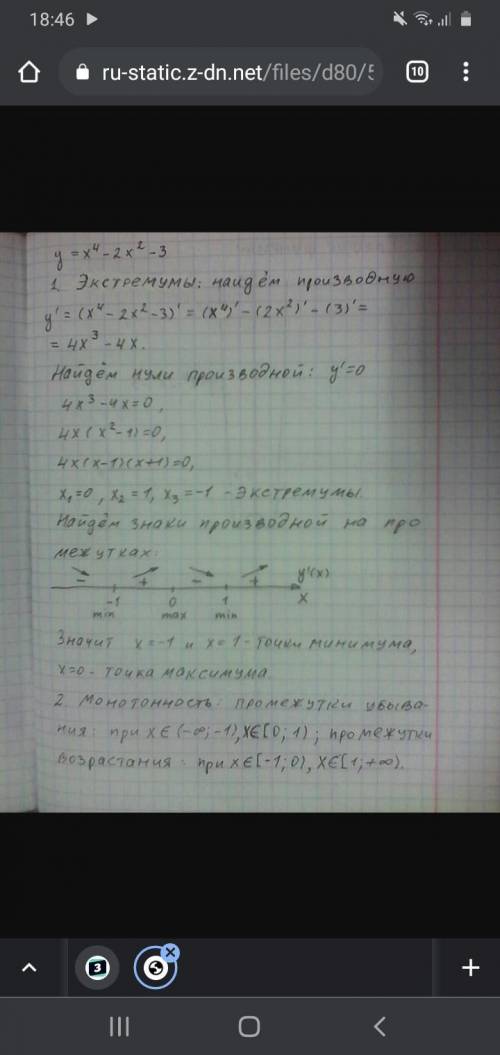 18:46
10
ru-static.z-dn.net/files/d80/5
y = x⁴ - 2x² - 3
1. Экстремумы: найдём производную
y' = (x⁴ - 2x² - 3)' = (x⁴)' - (2x²)' - (3)' =
= 4x³ - 4x.
Найдём нули производной: y'=0
4x³ - 4x = 0,
4x(x² - 1) = 0,
4x(x-1)(x+1) = 0,
x₁ = 0, x₂ = 1, x₃ = -1 - экстремумы.
Найдём знаки производной на про
межутках:
- + - + y'(x)
-1 0 1 x
min max min
Значит x = -1 и x = 1 - точки минимума,
x=0 - точка максимума.
2. Монотонность: промежутки убыва-
ния: при x∈(-∞; -1), x∈[0; 1); промежутки
возрастания: при x∈[-1; 0), x∈[1; +∞).
3